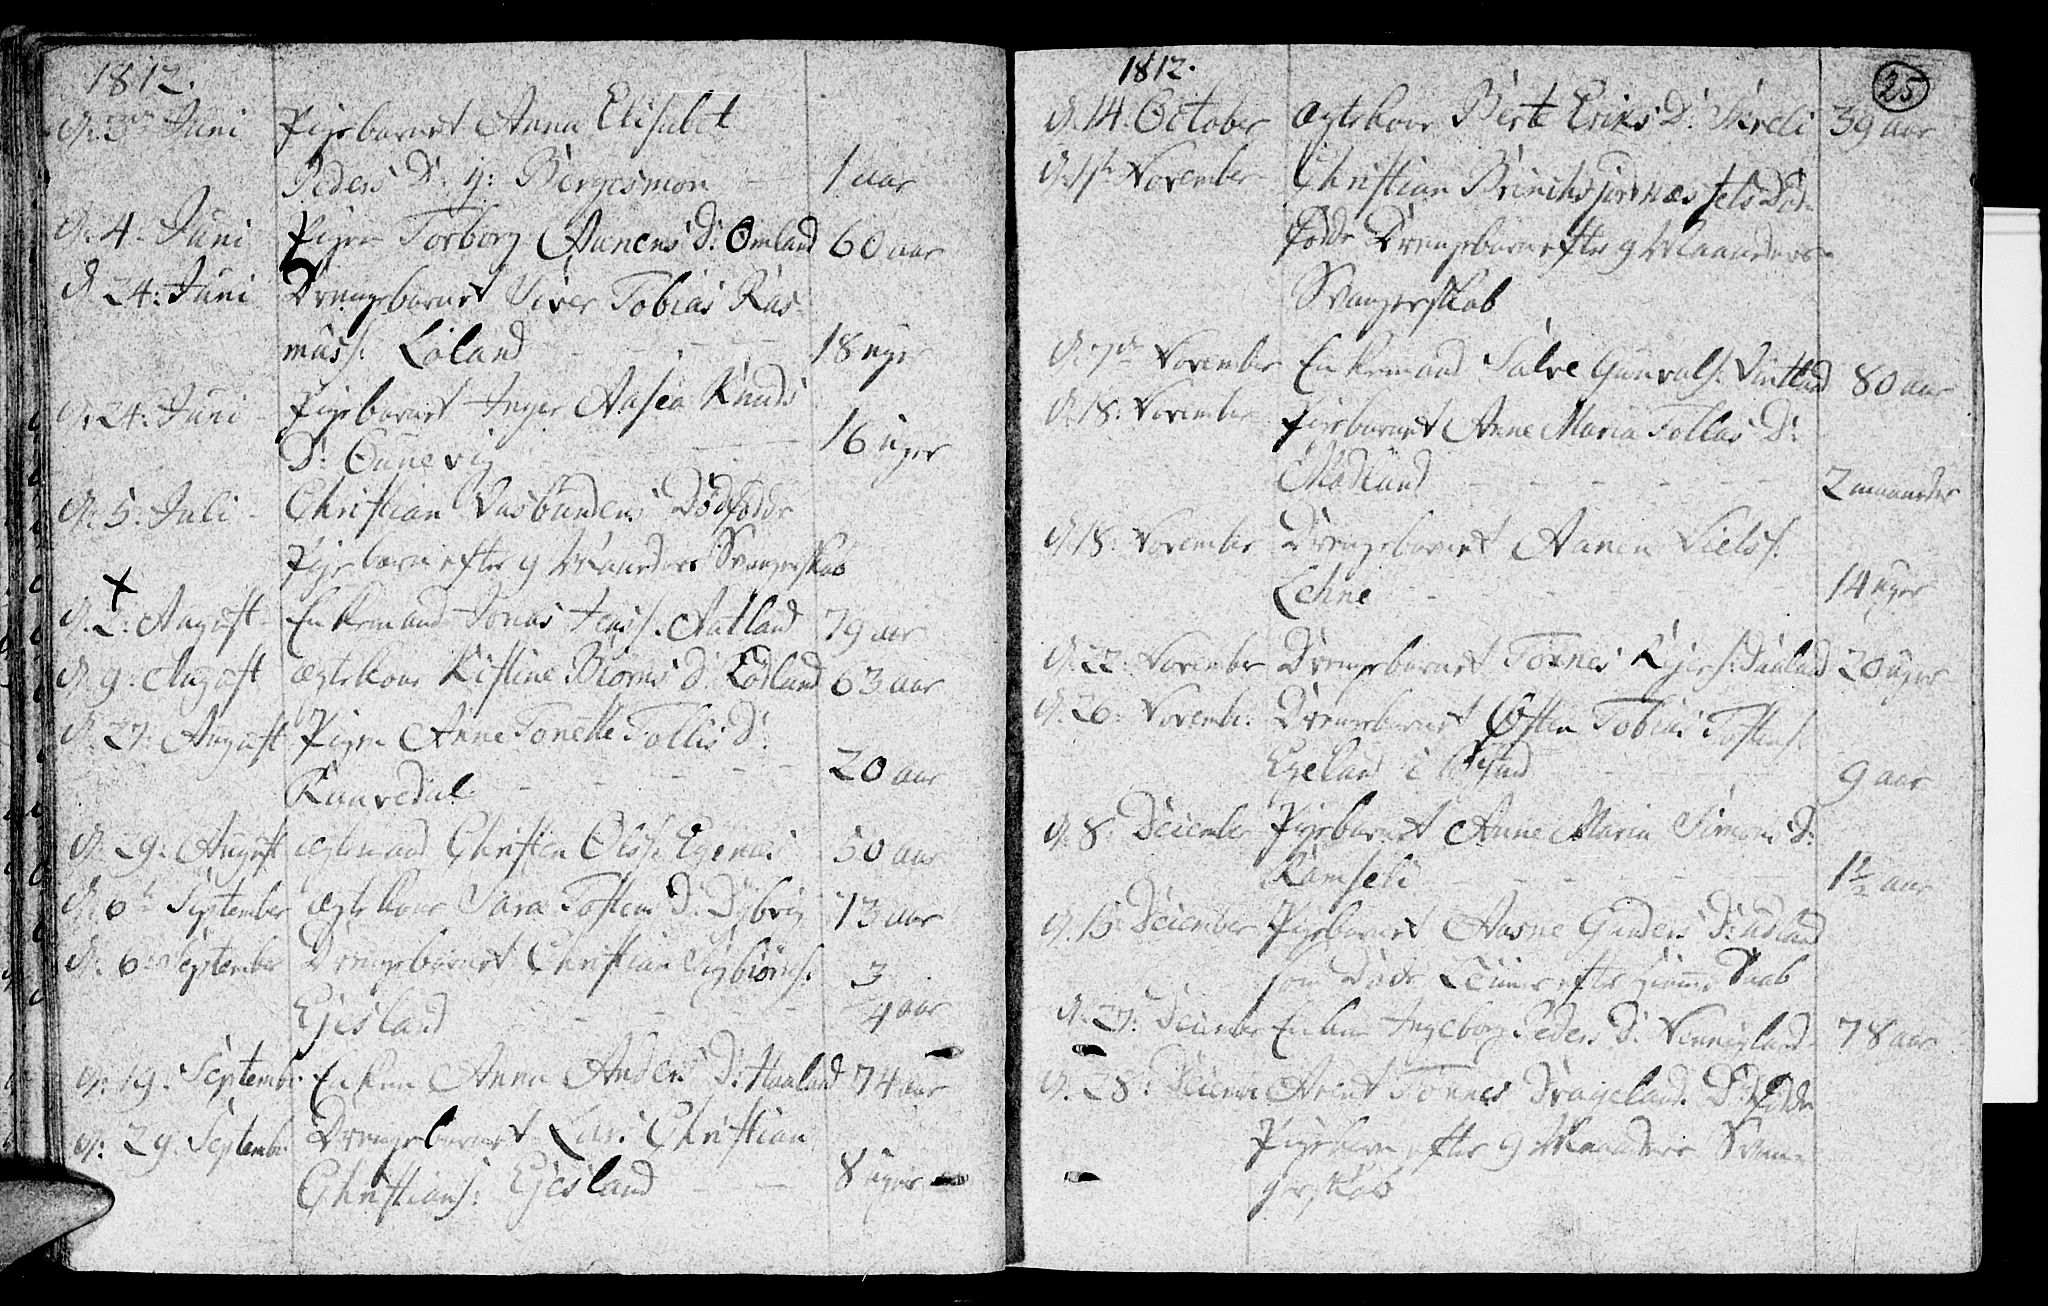 1812.
D. 3die Juni Pigebarnet Anna Elisabet
Peders D: y: Bergesmon 1 aar
D. 4. Juni Pigen Torborg Aanens D: Omland 60 aar
D. 24: Juni Drengebarnet Siver Tobias Ras-
muss: Løland 18 uger
D. 24: Juni Pigebarnet Inger Aasea Knuds
D: Øünevig 16 uger
D. 5: Juli Christian Dødfødde
Pigebarn efter 9 Maaneders Svangerskab
D. 2: August Enkemand Jonas Jenss: 79 aar
D. 9: August ægtekone Kistine Biørns D: Lødland 63 aar
D. 27: August Pigen Anne Tonette Tollis D:
20 aar
D. 29. August ægtemand Christen Olss: Egenæs 50 aar
D. 6te September ægtekone Sara Tostens D: Dybvig 73 aar
D. 6: September Drengebarnet Christian Sigbiørns:
Ejesland 3/4 aar
D. 19. Septemb: Enken Anna Anders D: Haaland 74 aar
D. 29. Septemb: Drengebarnet Lars Christian
Christians: Ejesland 8 uger
1812.
25
D. 14. October ægtekone Berte Eriks D: 39 aar
November Christian Død-
fødde Drengebarn efter 9 Maaneders
Svangerskab
D. 7de November Enkemand Salve Gunvals: 80 aar
D. 18: November Pigebarnet Anne Maria Tollas D:
Mødland 2 maaneder
D. 18: November Drengebarnet Aanen Nielss:
Lehne 14 uger
D. 22: November Drengebarnet Tønnes 20 uger
D. 26: Novemb: Drengebarnet Østen Tobias Tostens:
Egeland i 9 aar
D. 8: December Pigebarnet Anne Maria Simons D:
Ramseli 1 1/2 aar
D. 15: December Pigebarnet Aasne Gunders D:
som døde efter
D. 27: December Enken Ingeborg Peders D: 78 aar
D. 28: Tønnes Drageland Dødfødde
Pigebarn efter 9 Maaneders Svan-
gerskab